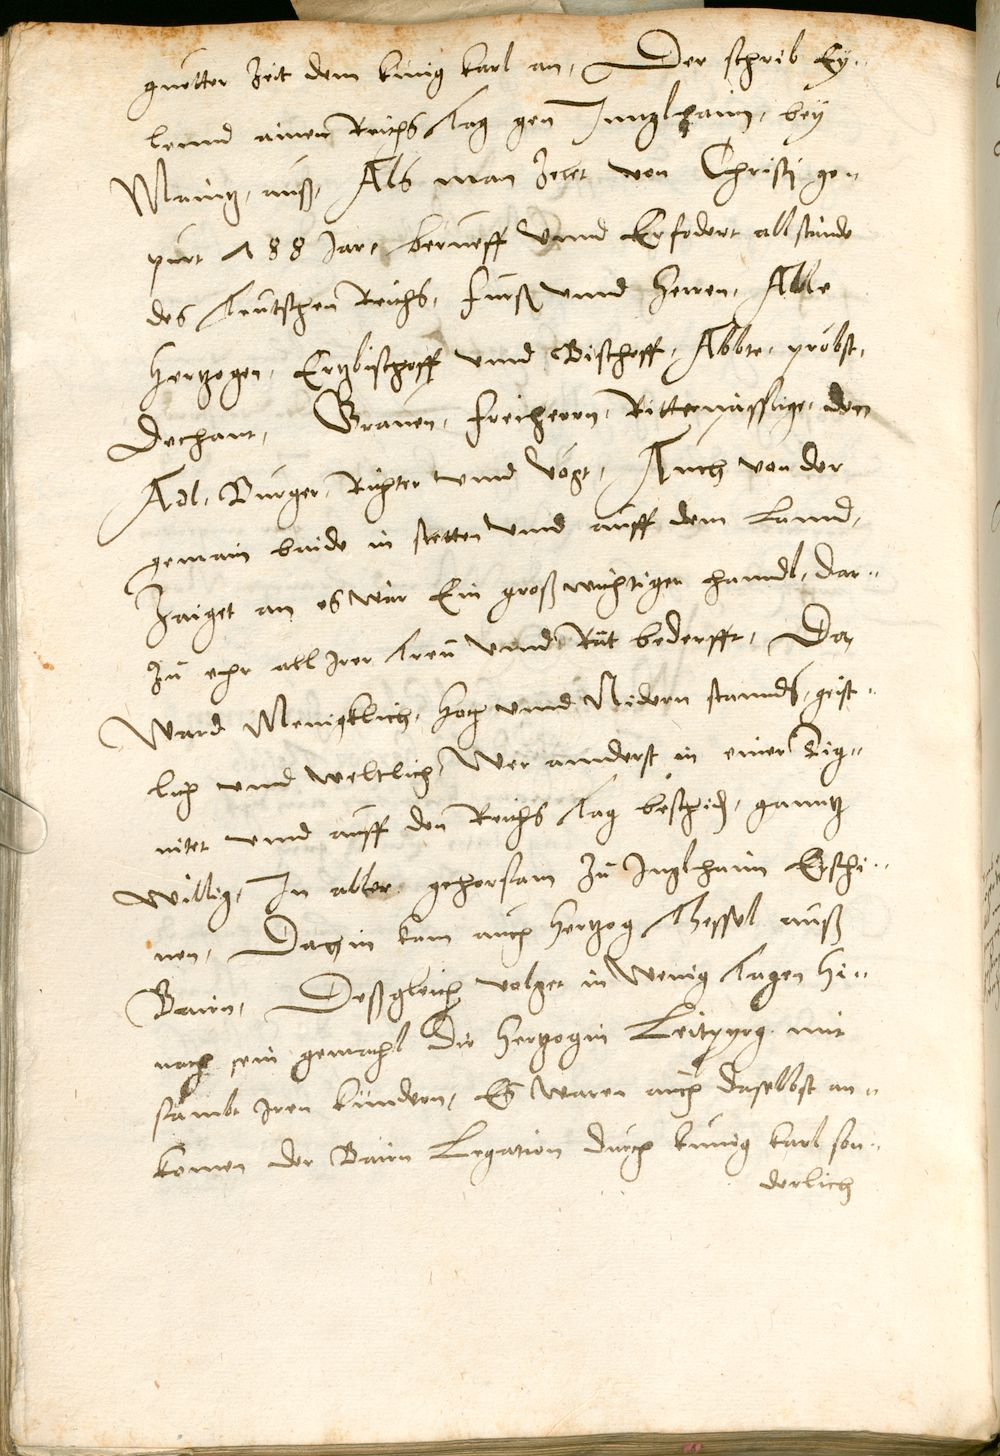 guetter Zeit dem künig karl an, Der schrib Ey¬
lennd ainen Reichs Tag gen Innglhaim, bey
Maintz, auß, Als man Zelet von Christi ge¬
purt 788 Jare berueff vnnd Erfodert all stände
des Teutschen Reichs, Fürst vnnd Herren, Alle
Hertzogen, Ertzbischoff vnnd Bischoff, Äbbte, pröbst,
Dechant, Grauen, Freiherrn, Rittermässige, den
Adl, Burger, Richter vnnd Vögt, Auch von der
gemain baide in stetten vnnd auff dem Lannd,
Zaiget an es wär Ein groß wichtiger hanndl, Dar¬
Zu ehr all Irer Treu vnnd Rat bederfft, Da
Ward Menigklich, hoch vnnd Nidern stannds, geist¬
lich vnnd weltlich, Wer annderst in einer Dig¬
nitet vnnd auff den Reichs Tag beschiden, ganntz
willig, In aller gehorsam Zu Inglhaim Erschi¬
nen, Dahin kam auch Hertzog Thessel auß
Bairn, Deßgleich volget in Wenig Tagen hi¬
nach sein gemachl die Hertzogin Leitpyrg mit
sambt Iren kündern, Es waren auch daselbst an¬
komen der Bairn Legation durch künig karl son¬
derlich